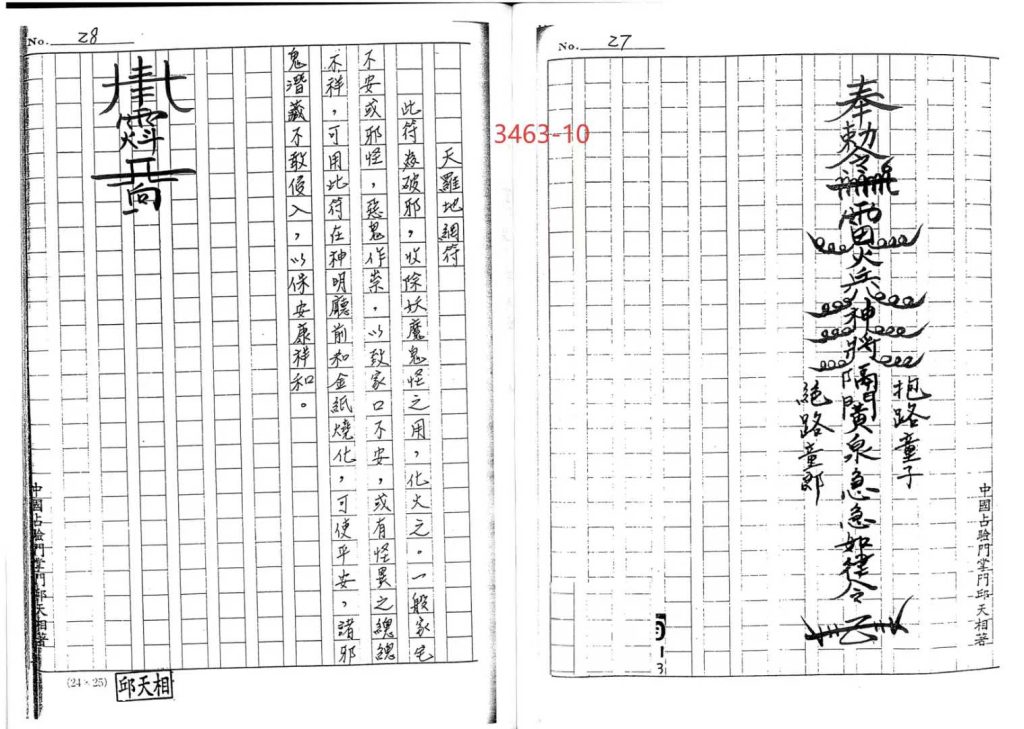 No. 27
奉勅令
雷火兵神將隔開黃泉急急如律令
抱路童子
絕路童郎
中國占驗門掌門邱天相著
3463-10
No. 28
天羅地網符
此符為破邪，收除妖魔鬼怪之用，化火之。一般家宅
不安或邪怪，惡鬼作祟，以致家口不安，或有怪異之總總
不祥，可用此符在神明廳前和金紙燒化，可使平安，諸邪
鬼潛藏不敢侵入，以保安康祥和。
中國占驗門掌門邱天相著
(24×25)
邱天相